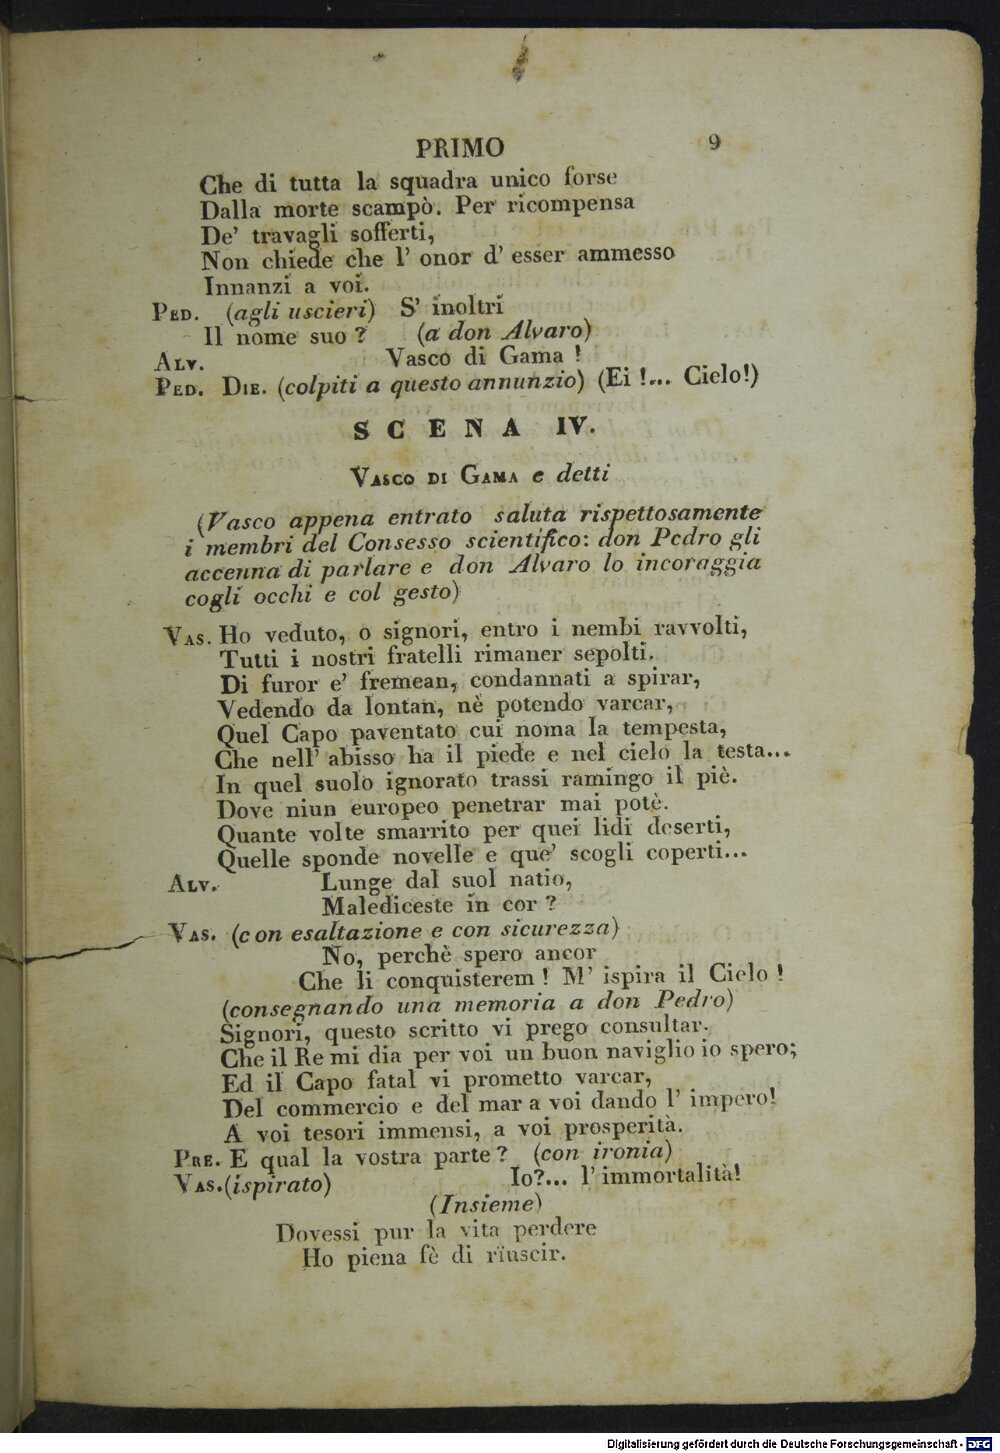 PRIMO 9
Che di tutta la squadra unico forse
Dalla morte scampò. Per ricompensa
De' travagli sofferti,
Non chiede che l' onor d' esser ammesso
Innanzi a voi.
PED. (agli uscieri) S' inoltri
Il nome suo ? (a don Alvaro)
ALV. Vasco di Gama !
PED. DIE. (colpiti a questo annunzio) (Ei !... Cielo!)
SCENA IV.
VASCO DI GAMA e detti
(Vasco appena entrato saluta rispettosamente
i membri del Consesso scientifico: don Pedro gli
accenna di parlare e don Alvaro lo incoraggia
cogli occhi e col gesto)
VAS. Ho veduto, o signori, entro i nembi ravvolti,
Tutti i nostri fratelli rimaner sepolti.
Di furor e' fremean, condannati a spirar,
Vedendo da lontan, nè potendo varcar,
Quel Capo paventato cui noma la tempesta,
Che nell' abisso ha il piede e nel cielo la testa...
In quel suolo ignorato trassi ramingo il piè.
Dove niun europeo penetrar mai potè.
Quante volte smarrito per quei lidi deserti,
Quelle sponde novelle e que' scogli coperti...
ALV. Lunge dal suol natio,
Malediceste in cor ?
VAS. (con esaltazione e con sicurezza)
No, perchè spero ancor
Che li conquisterem ! M' ispira il Cielo !
(consegnando una memoria a don Pedro)
Signori, questo scritto vi prego consultar.
Che il Re mi dia per voi un buon naviglio io spero;
Ed il Capo fatal vi prometto varcar,
Del commercio e del mar a voi dando l' impero!
A voi tesori immensi, a voi prosperità.
PRE. E qual la vostra parte ? (con ironia)
VAS.(ispirato) Io?... l' immortalità!
(Insieme)
Dovessi pur la vita perdere
Ho piena fè di rïuscir.
Digitalisierung gefördert durch die Deutsche Forschungsgemeinschaft - DFG